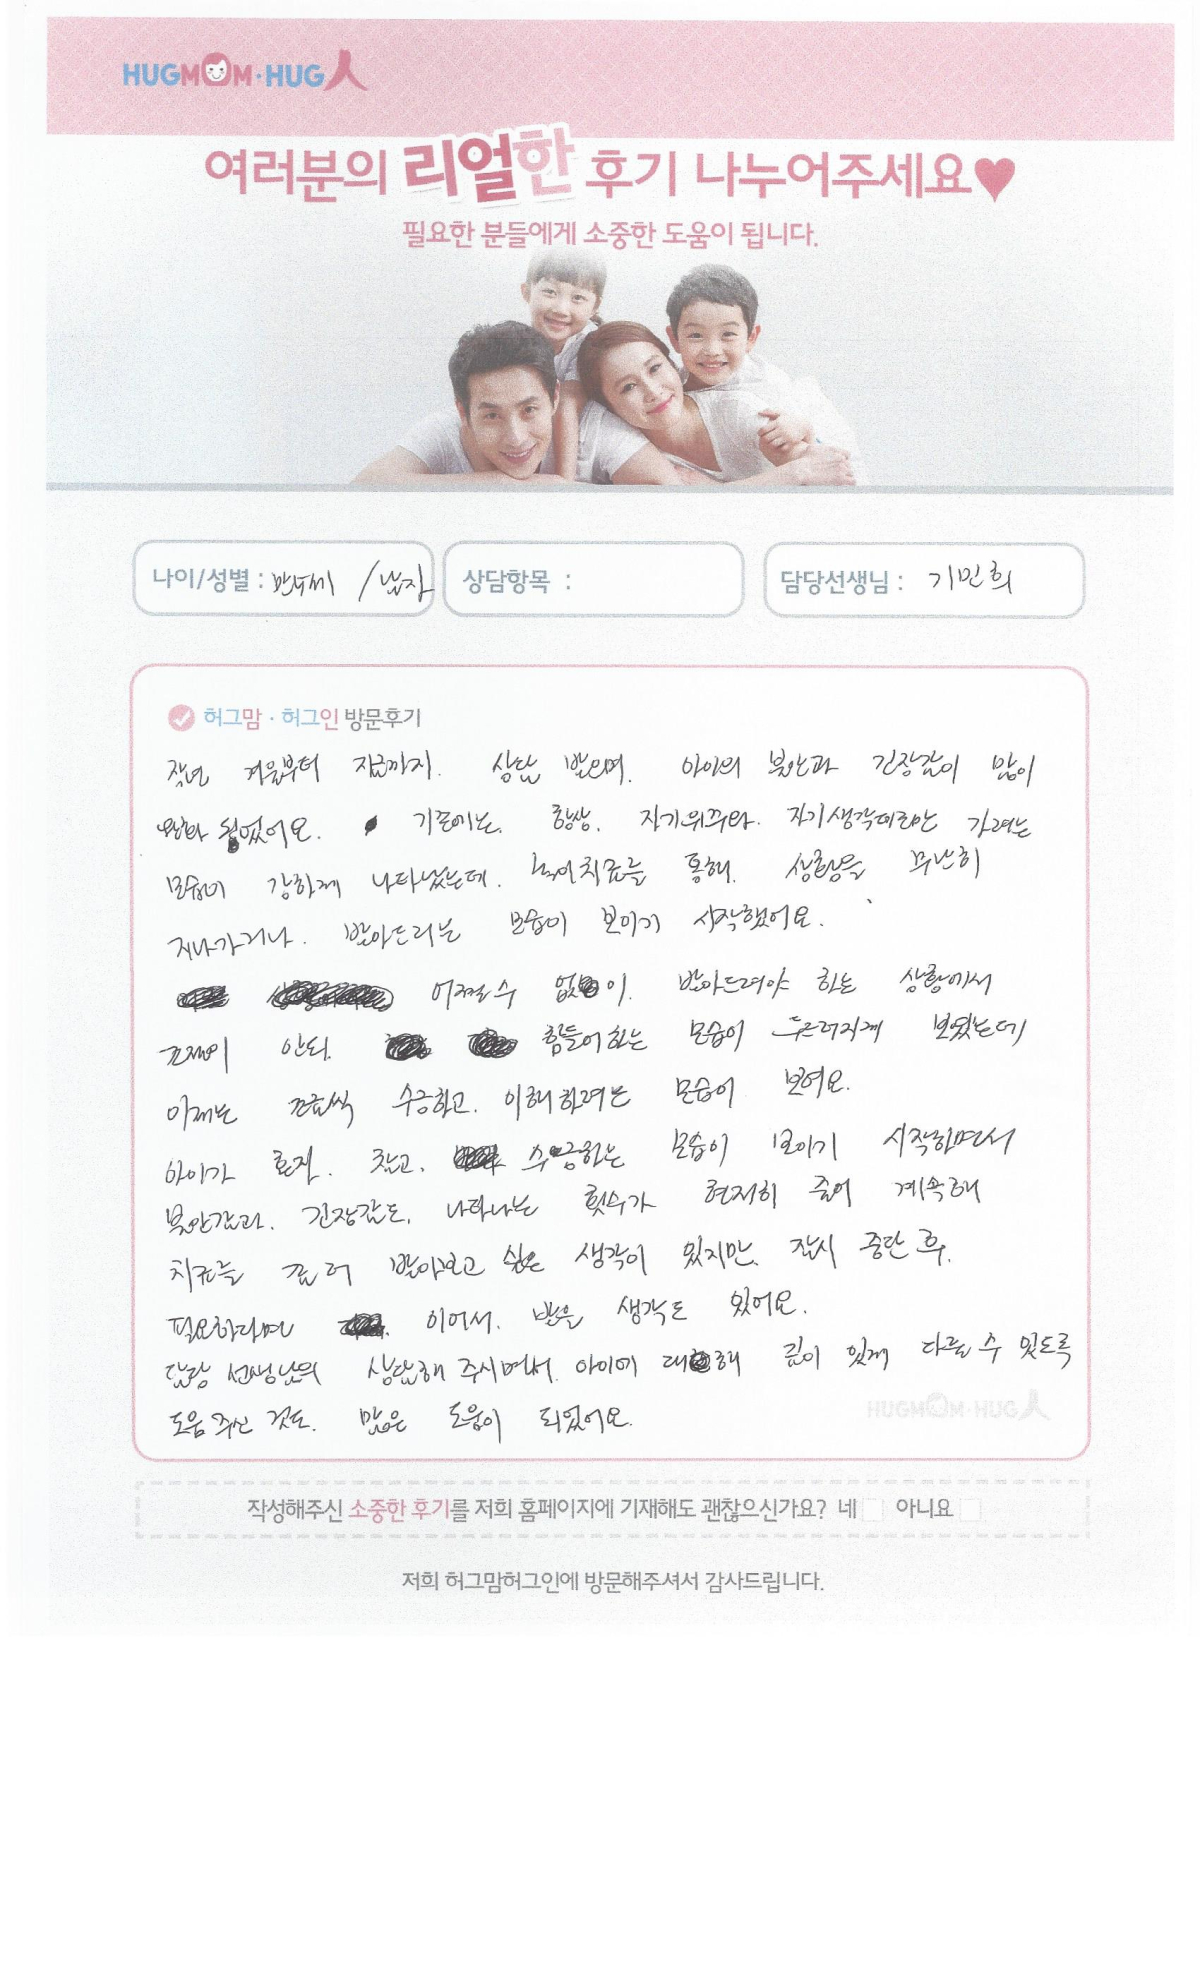 HUGMOM·HUG人
여러분의 리얼한 후기 나누어주세요♥
필요한 분들에게 소중한 도움이 됩니다.
나이/성별 : /남자 상담항목 : 담당선생님 : 기민희
허그맘 · 허그인 방문후기
작년 겨울부터 지금까지. 상담 받으며. 아이의 불안과 긴장감이 많이
완화 되었어요. 기존에는. 항상. 자기위주와. 자기생각대로만 가려는
모습이 강하게 나타났는데. 놀이치료를 통해. 상황을 무난히
지나가거나. 받아드리는 모습이 보이기 시작했어요.
어쩔수 없이. 받아드려야 하는 상황에서
안되. 힘들어하는 모습이 두드러지게 보였는데
이제는 조금씩 수긍하고. 이해하려는 모습이 보여요.
아이가 혼자. 참고. 수긍하는 모습이 보이기 시작하면서
불안감과. 긴장감도. 나타나는 횟수가 현저히 줄어 계속해
치료를 받아보고 싶은 생각이 있지만. 잠시 중단 후.
필요하다면 이어서. 받을 생각도 있어요.
담당 선생님의 상담해 주시면서. 아이에 대해 깊이 있게 다룰 수 있도록
도움 주신 것도. 많은 도움이 되었어요.
HUGMOM·HUG人
작성해주신 소중한 후기를 저희 홈페이지에 기재해도 괜찮으신가요? 네 아니요
저희 허그맘허그인에 방문해주셔서 감사드립니다.